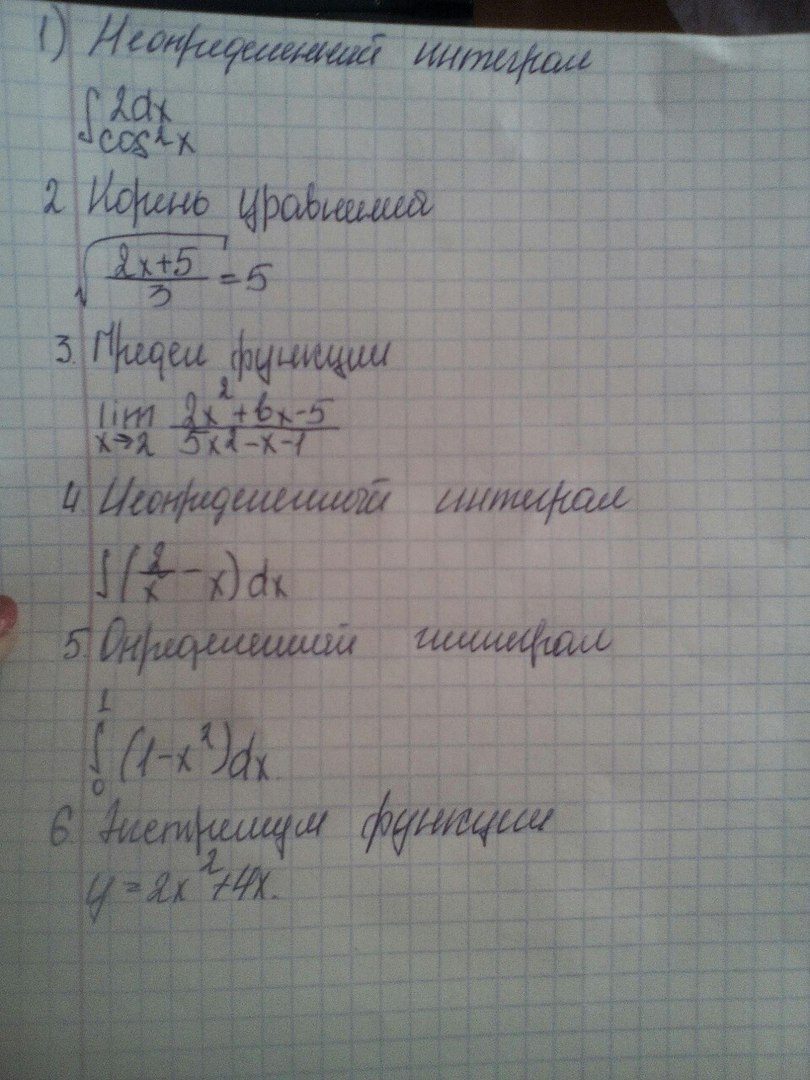 1) Неопределенный интеграл
∫ 2dx / cos²x
2 Корень уравнения
√((2x+5)/3) = 5
3. Предел функции
lim x→2 (2x²+6x-5)/(5x2-x-1)
4 Неопределенный интеграл
∫(2/x - x)dx
5. Определенный интеграл
∫₀¹ (1-x²)dx
6. Экстремум функции
y=2x²+4x.